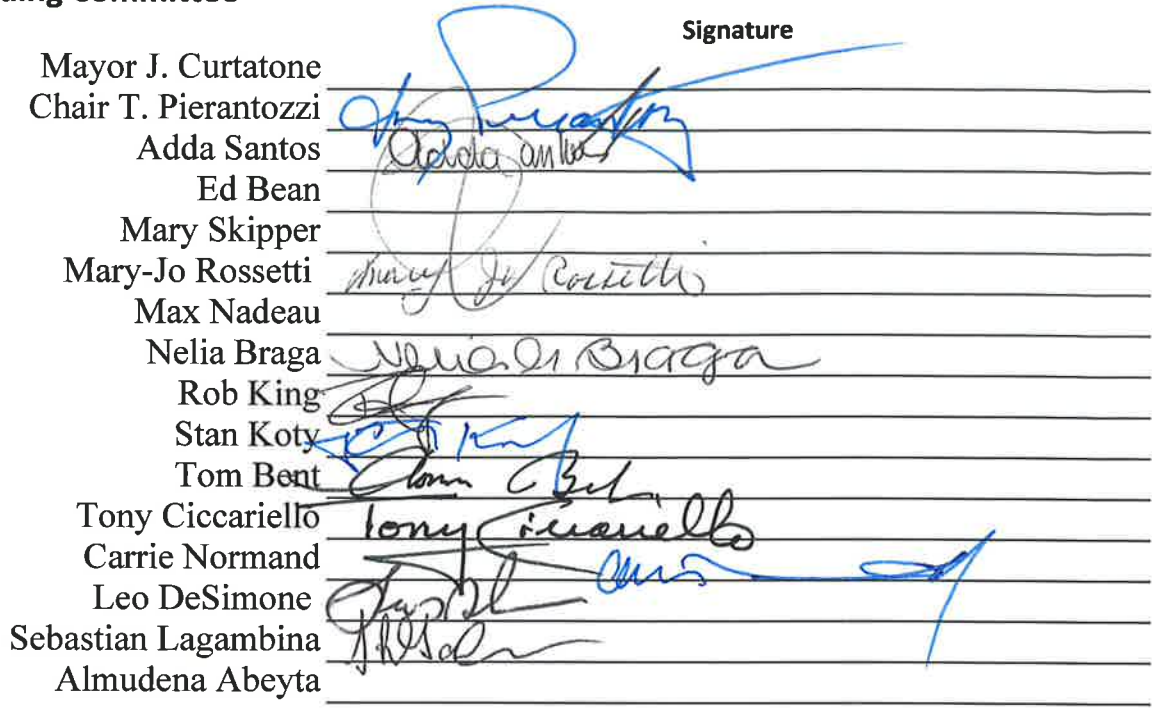 Committee
Signature
Mayor J. Curtatone
Chair T. Pierantozzi
Adda Santos Adda
Ed Bean
Mary Skipper
Mary-Jo Rossetti Mary Jo Rossetti
Max Nadeau
Nelia Braga Braga
Rob King
Stan Koty
Tom Bent Tom C Bent
Tony Ciccariello Tony Ciccariello
Carrie Normand
Leo DeSimone
Sebastian Lagambina
Almudena Abeyta